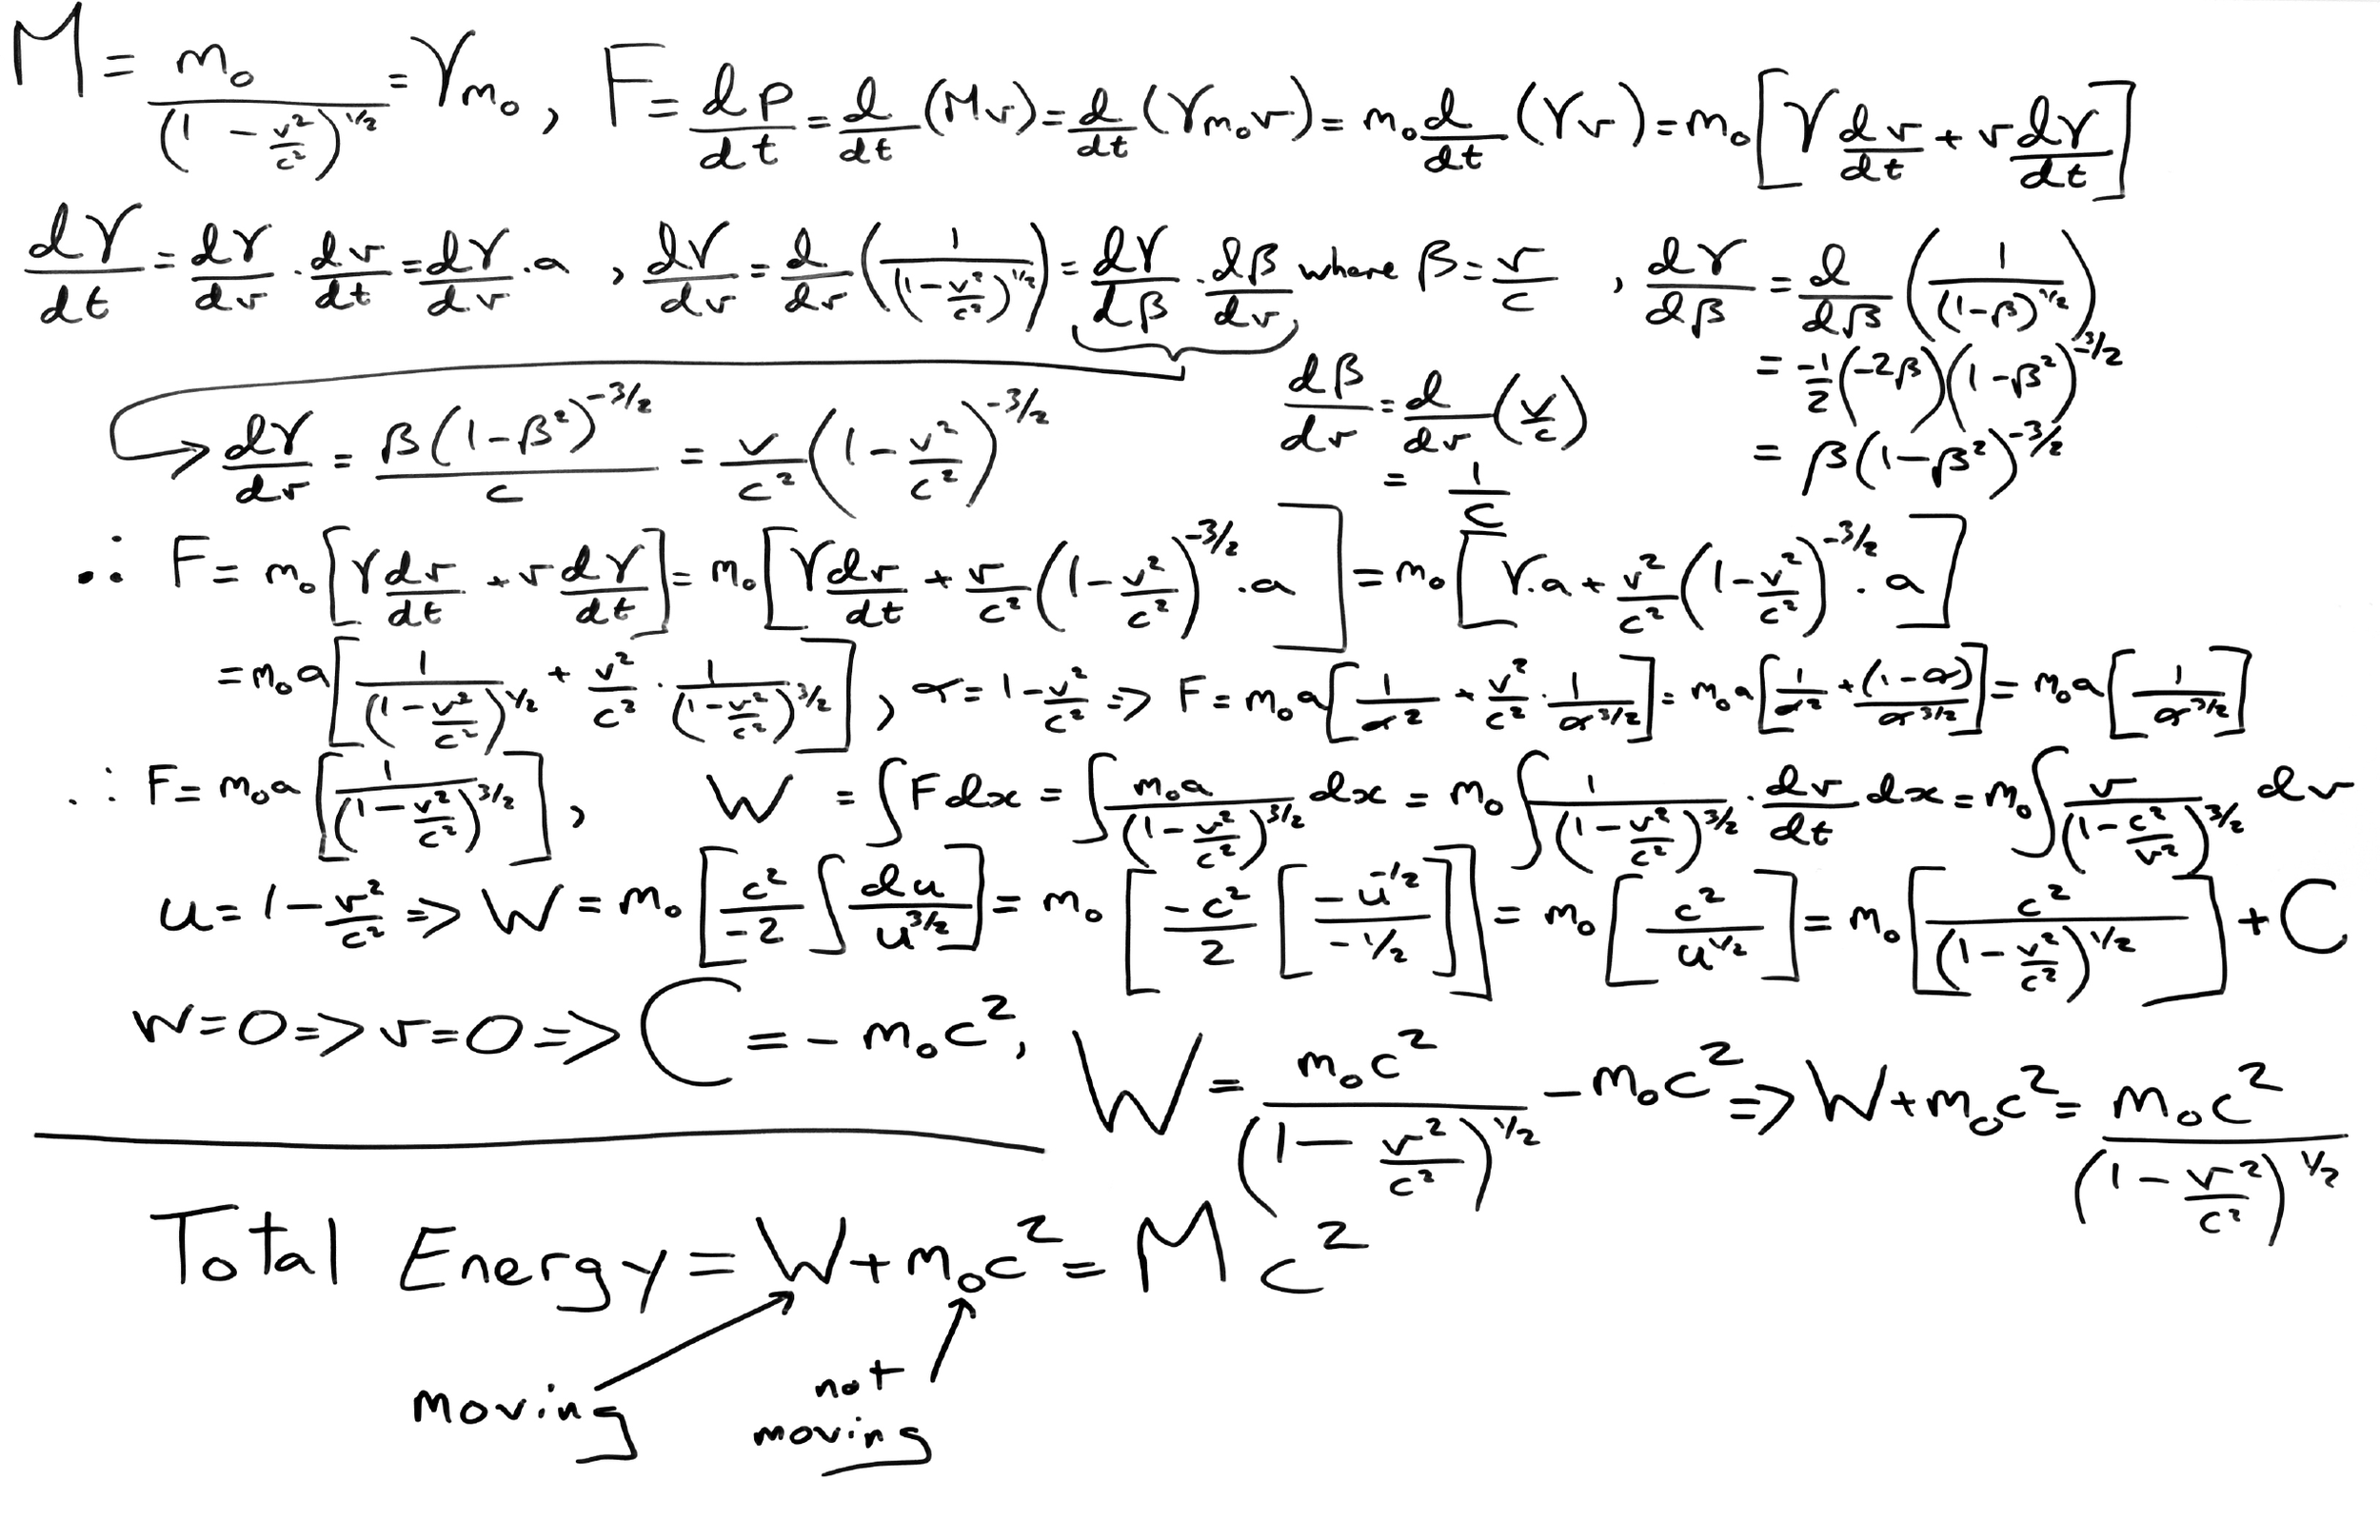 M = m₀/(1 - v²/c²)^1/2 = γm₀, F = dp/dt = d/dt (Mv) = d/dt (γm₀v) = m₀ d/dt (γv) = m₀[γ dv/dt + v dγ/dt]
dγ/dt = dγ/dv · dv/dt = dγ/dv · a , dγ/dv = d/dv (1/(1 - v²/c²)^1/2) = dγ/dβ · dβ/dv where β = v/c , dγ/dβ = d/dβ (1/(1-β)^1/2)
= -1/2 (-2β)(1-β²)^-3/2
= β(1-β²)^-3/2
dβ/dv = d/dv (v/c)
= 1/c
→ dγ/dv = β(1-β²)^-3/2 / c = v/c² (1 - v²/c²)^-3/2
∴ F = m₀[γ dv/dt + v dγ/dt] = m₀[γ dv/dt + v/c² (1 - v²/c²)^-3/2 · a] = m₀[γ.a + v²/c² (1 - v²/c²)^-3/2 · a]
= m₀a[1/(1 - v²/c²)^1/2 + v²/c² · 1/(1 - v²/c²)^3/2], α = 1 - v²/c² => F = m₀a[1/α² + v²/c² · 1/α^3/2] = m₀a[1/α² + (1-α)/α^3/2] = m₀a[1/α^3/2]
∴ F = m₀a[1/(1 - v²/c²)^3/2], W = ∫F dx = ∫ m₀a/(1 - v²/c²)^3/2 dx = m₀∫ 1/(1 - v²/c²)^3/2 · dv/dt dx = m₀∫ v/(1 - c²/v²)^3/2 dv
u = 1 - v²/c² => W = m₀[c²/-2 ∫ du/u^3/2] = m₀[-c²/2 [-u^-1/2 / -1/2]] = m₀[c²/u^1/2] = m₀[c²/(1 - v²/c²)^1/2] + C
W = 0 => v = 0 => C = - m₀c², W = m₀c²/(1 - v²/c²)^1/2 - m₀c² => W + m₀c² = m₀c²/(1 - v²/c²)^1/2
Total Energy = W + m₀c² = M c²
moving not moving